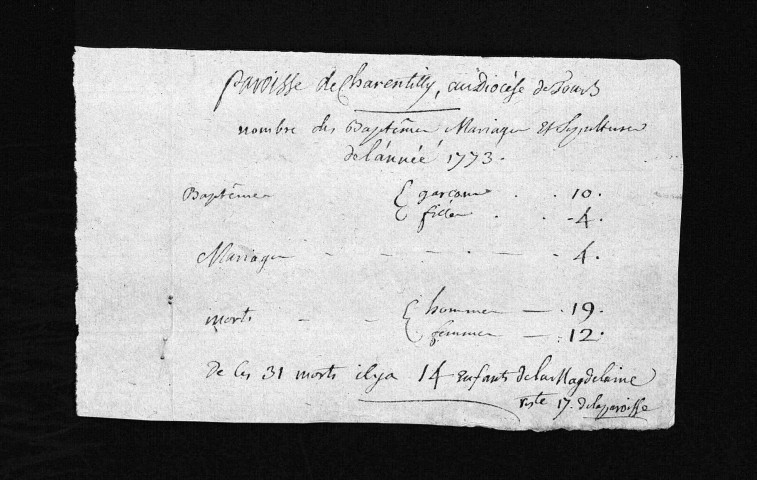 paroisse de Charentilly, au Diocése de Tours
nombre des Baptêmes Mariages Et Sepultures
de l'année 1773.
Baptêmes { garçons . . 10.
{ filles . . 4.
Mariages - - - - - 4.
morts - - { hommes — . 19.
{ femmes — : 12.
De Ces 31 morts il y a 14 Enfants de la Magdelaine
reste 17. de la paroisse